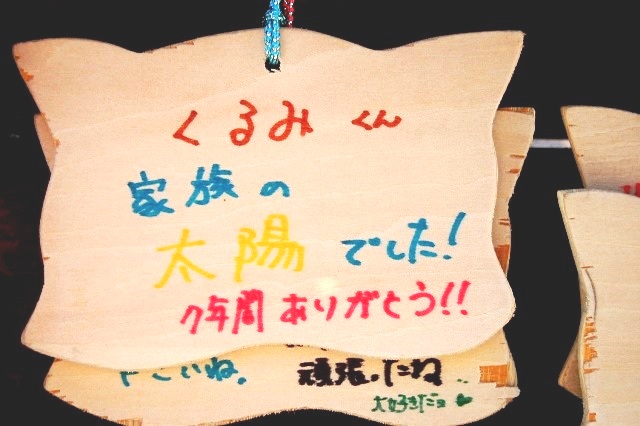 くるみくん
家族の
太陽でした!
7年間ありがとう!!
頑張ったね
大好きだョ